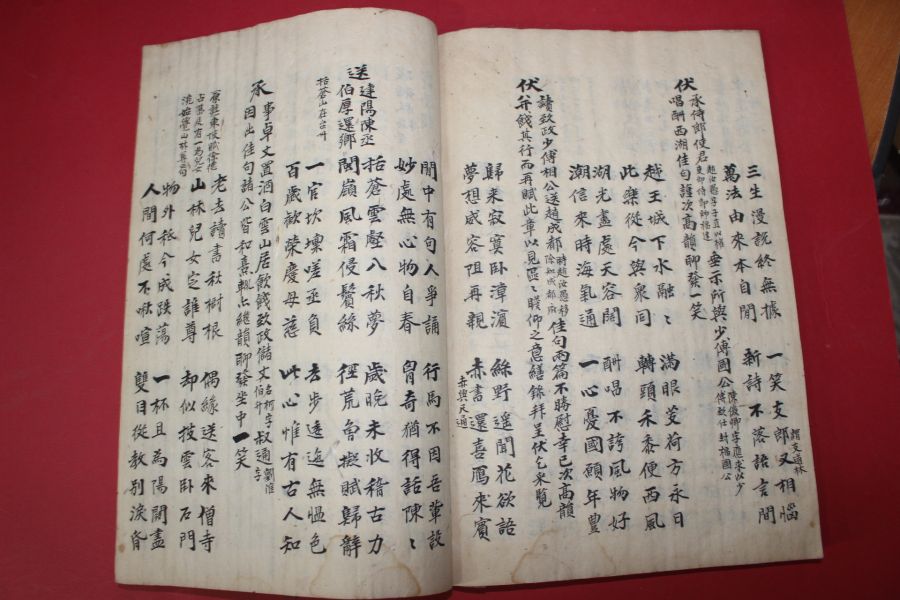 三生漫説終無據　一笑支郎又相惱 謂支道林
萬法由來本自閒　新詩不落語言間
伏承侍郎使君 垂示所與少傅國公
唱酬西湖佳句謹次高韻聊發一笑
越王城下水融〻　滿眼芰荷方永日
此樂從今與衆同　轉頭禾黍便西風
湖光盡處天容闊　酬唱不誇風物好
潮信來時海氣通　一心憂國願年豐
伏讀致政少傅相公送趙成都 佳句兩篇不勝慰幸已次高韻
并餞其行而再賦此章以見區〻瞻仰之意繕錄拜呈伏乞采覽
歸來寂寞卧漳濱　綠野遥聞花欲語
夢想威容阻再親　赤書還喜鴈來賓
赤與尺通
閒中有句人爭誦　行馬不因吾輩設
妙處無心物自春　胷奇猶得話陳〻
送建陽陳丞
伯厚還鄉
括蒼雲壑八秋夢　歲晚未收稽古力
閩嶺風霜侵鬢絲　徑荒魯擬賦歸辭
括蒼山在台州
一官坎壈嗟丞負　去步逶迤無愠色
百歲歡榮慶母慈　此心惟有古人知
承事卓文置酒白雲山居飲餞致政儲文 叔通
因出佳句諸公皆知熹輒亦繼韻聊發坐中一笑
老去讀書秋樹根　偶緣送客來僧寺
山林兒女定誰尊　却似投雲卧石門
物外秖今成跌蕩　一杯且為陽關盡
人間何處不啾喧　雙目從教别淚昏